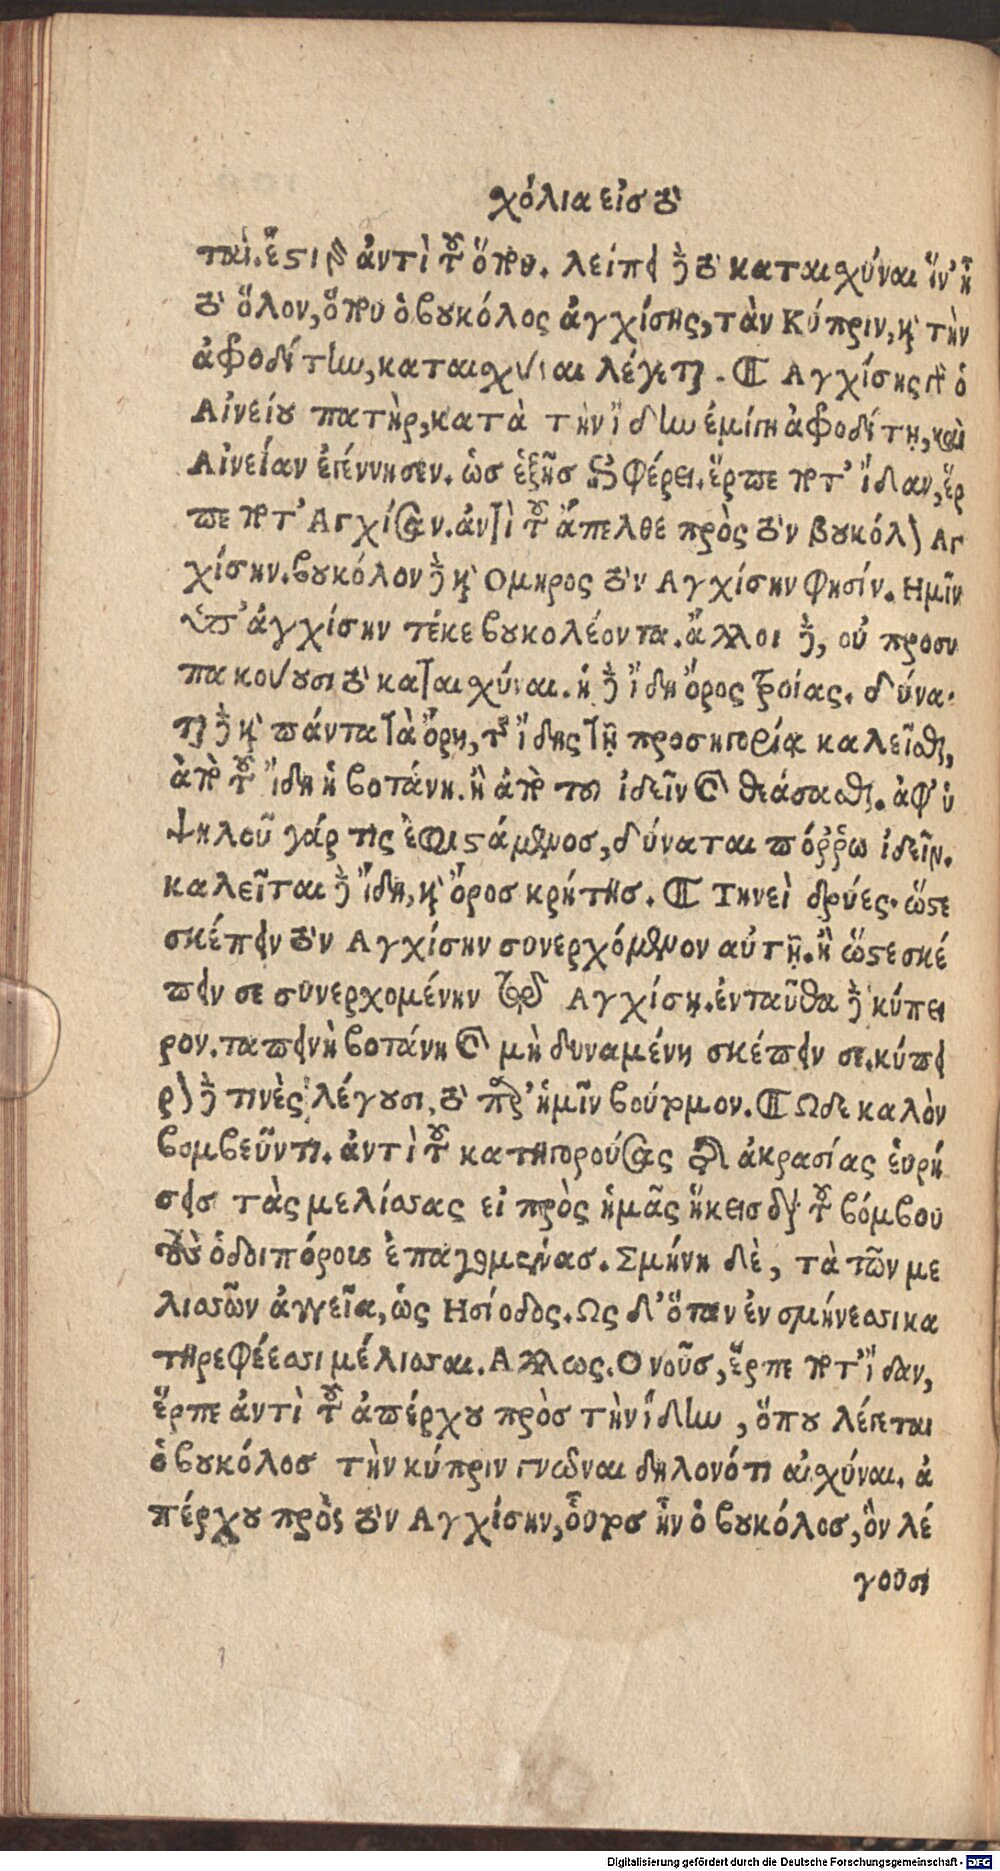 σχόλια εἰς τὸ
ται. ἔστι δὲ ἀντὶ τοῦ ὅπου. λείπει δὲ τὸ καταισχύναι ἵν' ᾖ
τὸ ὅλον, ὅπου ὁ βουκόλος ἀγχίσης, τὰν Κύπριν, καὶ τὴν
ἀφροδίτην, καταισχῦναι λέγεται. ¶ Αγχίσης γὰρ ὁ
Αἰνείου πατὴρ, κατὰ τὴν ἴδην ἐμίγη ἀφροδίτῃ, καὶ
Αἰνείαν ἐγέννησεν. ὡς ἑξῆς ἐπιφέρει. ἕρπε ποτ' ἴδαν, ἕρ
πε ποτ' Αγχίσαν. ἀντὶ τοῦ ἄπελθε πρὸς τὸν βουκόλον Αγ
χίσην. βουκόλον δὲ καὶ Ομηρος τὸν Αγχίσην φησίν. Ημῖν
ὑπ' ἀγχίσην τέκε βουκολέοντα. ἄλλοι δὲ, οὐ προσυ
πακούουσι τὸ καταισχύναι. ἡ δὲ ἴδη ὄρος τροίας. δύνα-
ται δὲ καὶ πάντα τὰ ὄρη, τῇ ἴδης τῇ προσηγορίᾳ καλεῖσθαι,
ἀπὸ τοῦ ἴδη ἡ βοτάνη. ἢ ἀπὸ τοῦ ἰδεῖν τὸ θεάσασθαι. ἀφ' ὑ
ψηλοῦ γάρ τις ἐφιστάμενος, δύναται πόῤῥω ἰδεῖν.
καλεῖται δὲ ἴδη, καὶ ὄρος κρήτης. ¶ Τηνεὶ δρύες. ὥστε
σκέπειν τὸν Αγχίσην συνερχόμενον αὐτῇ. ἢ ὥστε σκέ
πειν σε συνερχομένην τῷ Αγχίσῃ. ἐνταῦθα δὲ κύπει
ρον. ταπεινὴ βοτάνη καὶ μὴ δυναμένη σκέπειν σε. κύπει
ρον δὲ τινὲς λέγουσι, τὸ παρ' ἡμῖν βούρμον. ¶ Ωδε καλὸν
βομβεῦντι. ἀντὶ τοῦ κατηγορούσας τῆς ἀκρασίας εὑρή
σεις τὰς μελίσσας εἰ πρὸς ἡμᾶς ἥκεις διὰ τοῦ βόμβου
τοὺς ὁδοιπόρους ἐπαγομένας. Σμήνη δὲ, τὰ τῶν με
λισσῶν ἀγγεῖα, ὡς Ησίοδος. Ως δ' ὅταν ἐν σμήνεσσι κα
τηρεφέεσσι μέλισσαι. Αλλως. Ο νοῦς, ἕρπε ποτ' ἴδαν,
ἕρπε ἀντὶ τοῦ ἀπέρχου πρὸς τὴν ἴδην, ὅπου λέγεται
ὁ βουκόλος τὴν κύπριν γνῶναι δηλονότι αἰσχύναι. ἀ
πέρχου πρὸς τὸν Αγχίσην, ὅστις ἦν ὁ βουκόλος, ὃν λέ
γουσι
Digitalisierung gefördert durch die Deutsche Forschungsgemeinschaft - DFG